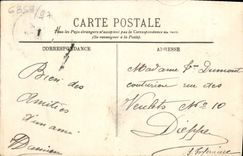 CARTE POSTALE
Tous les Pays étrangers n'acceptent pas la Correspondance au
(Se renseigner à la Poste)
CORRESPONDANCE
ADRESSE
Bien des
Amitiés
d'un ami
Damien
Madame Vve Dumont
couturière rue des
No 10
Dieppe
S. Inférieure